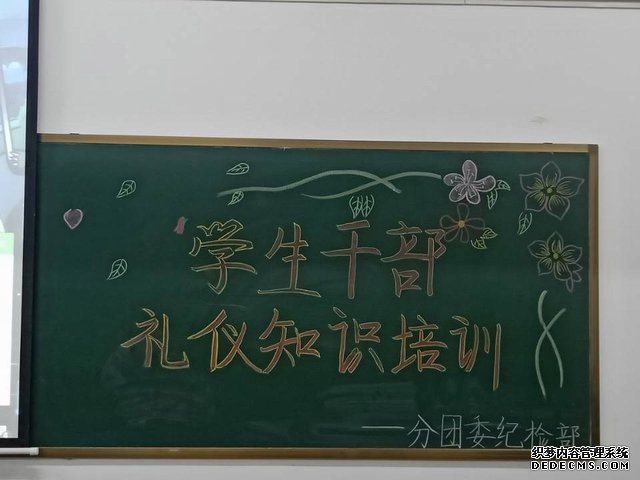 学生干部
礼仪知识培训
——分团委纪检部
织梦内容管理系统
DEDECMS.COM